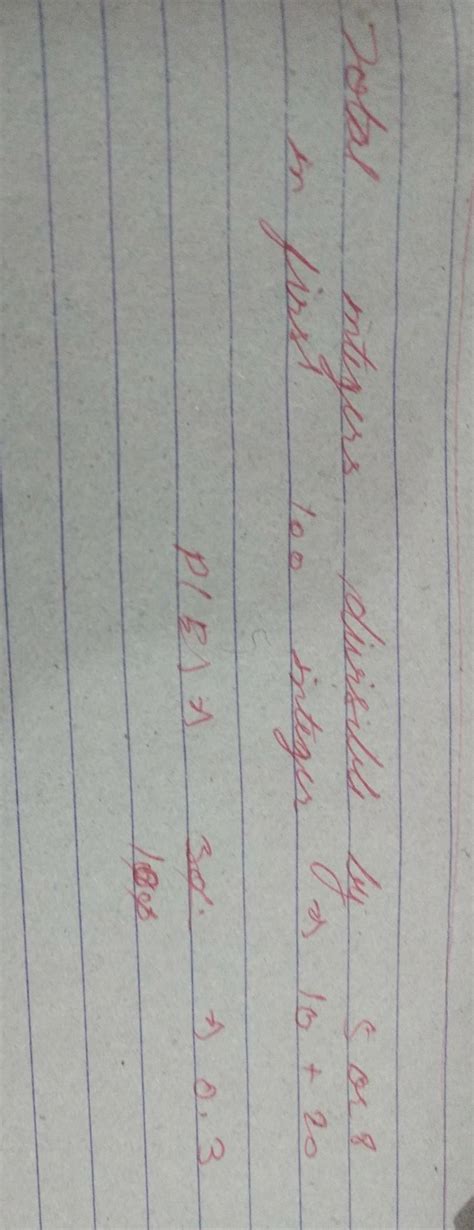 Total integers divisible by 5 or 8
in first 100 integer → 10 + 20
P(E) → 30 → 0.3
100